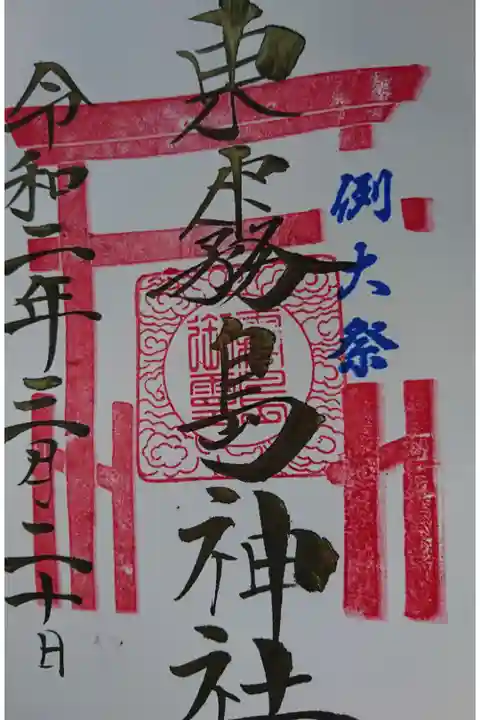 例大祭
東霧島神社
令和二年二月二十日